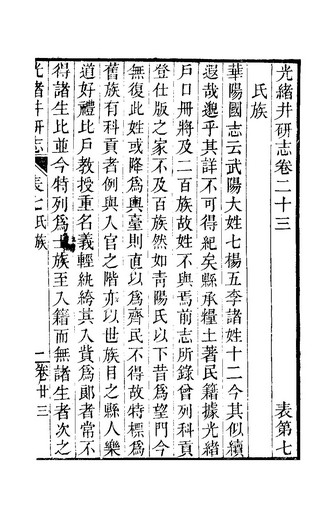 光緒井研志卷二十三　表第七
氏族
華陽國志云武陽大姓七楊五李諸姓十二今其似續
遐哉邈乎其詳不可得紀矣縣承糧土著民籍據光緒
戶口冊將及二百族故姓不與焉前志所錄曾列科貢
登仕版之家不及百族然如靑陽氏以下昔爲望門今
無復此姓或降爲輿臺則直以爲齊民不得故特標爲
舊族有科貢者例與入官之階亦以世族目之縣人樂
道好禮比戶教授重名義輕紈綺其入貲爲郞者常不
得諸生比並今特列爲士族至入籍而無諸生者次之
光緒井研志　表七氏族　二　卷廿三